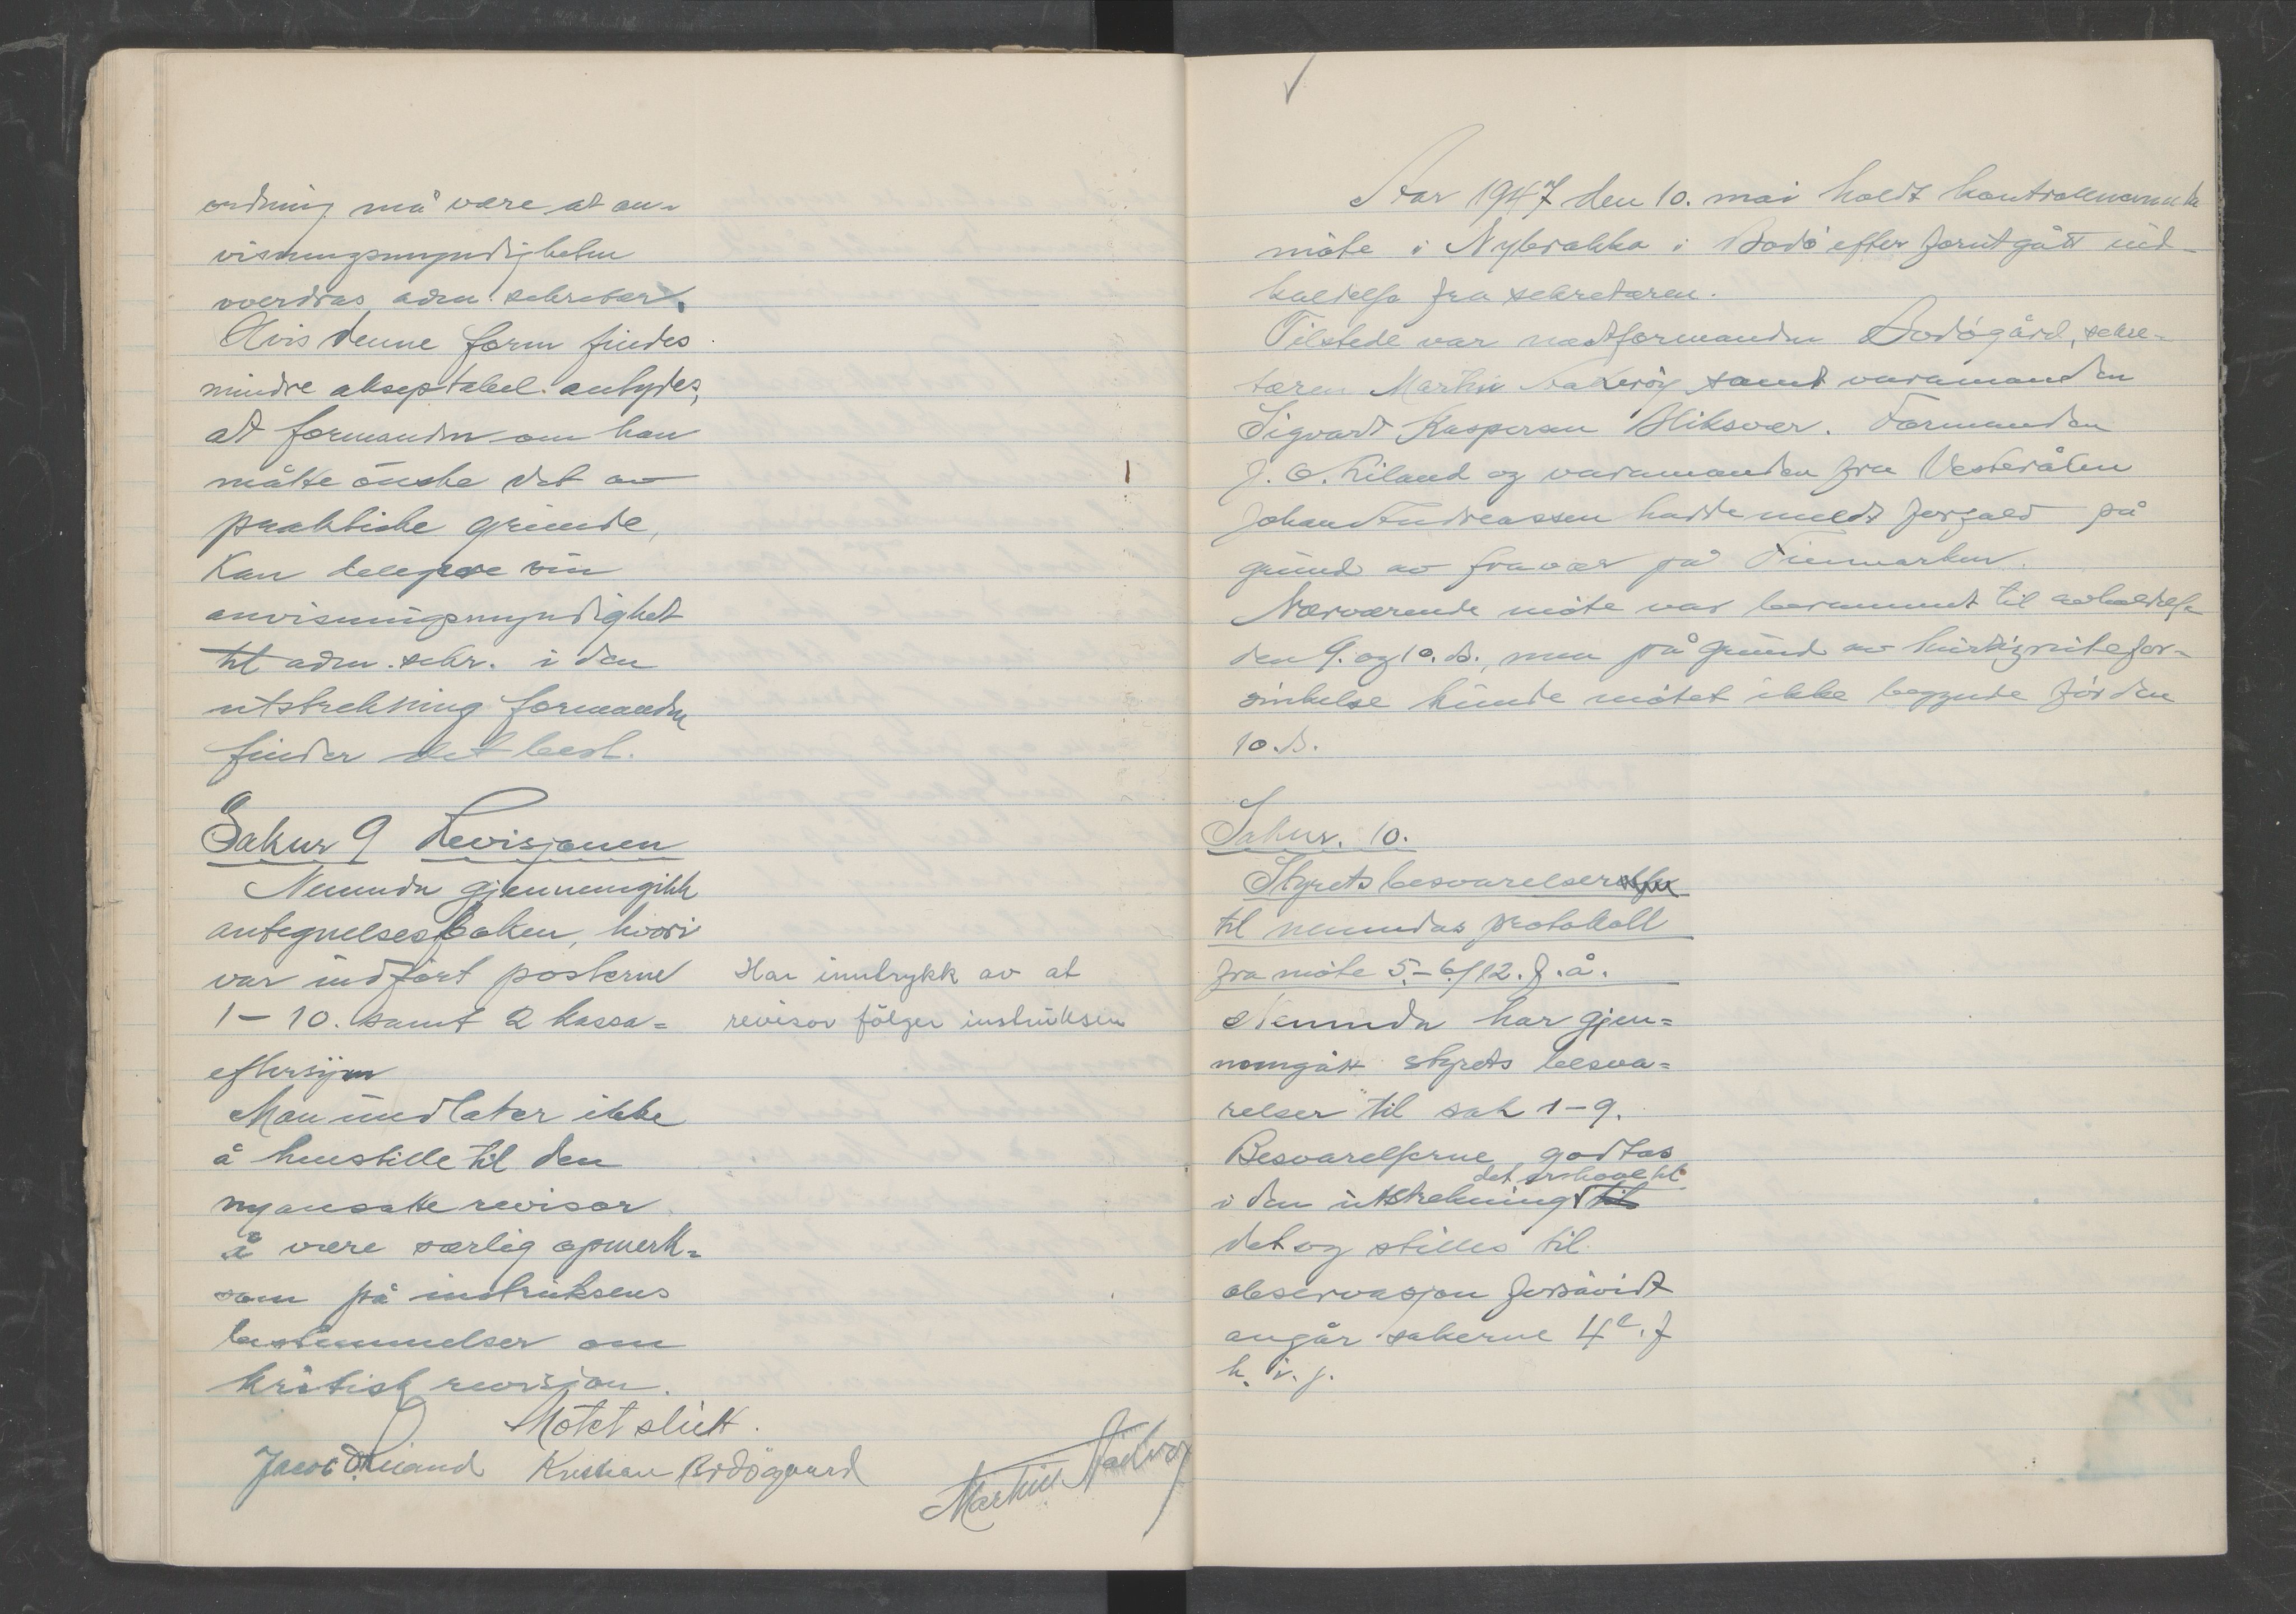 ordning må være at an-
visningsmyndigheten
overdras adm. sekretær.
Hvis denne form findes
mindre akseptabel antydes,
at formanden om han
måtte ønske det av
praktiske grunde,
kan delegere sin
anvisningsmyndighet
til adm. sekr. i den
utstrekning formanden
finder det best.
Saknr 9 Revisjonen
Nemnda gjennemgikk
antegnelsesboken, hvori
var indført posterne
1-10. samt 2 kassa=
eftersyn
Man undlater ikke
å henstille til den
nyansatte revisor
å være særlig opmerk=
som på instruksens
bestemmelser om
kritisk revisjon.
Har inntrykk av at
revisor følger instruksen
Møtet slutt.
Jacob O. Kiland Kristian Bodøgaard
Martin
Aar 1947 den 10. mai holdt kontrollnemnda
møte i Nybrakka i Bodø efter forutgått ind-
kaldelse fra sekretæren.
Tilstede var næstformanden Bodøgård, sekre-
tæren Martin samt varamanden
Sigvart Kaspersen Hliksvær. Formanden
J. O. Kiland og varamanden fra Vesterålen
Johan Andreassen hadde meldt forfald på
grund av fravær på Finmarken.
Nærværende møte var berammet til avholdelse
den 9. og 10. ds., men på grund av hurtigrutefor-
sinkelse kunde møtet ikke begynde før den
10. ds.
Saknr. 10.
Styrets besvarelser
til nemndas protokoll
fra møte 5.-6/12. f.å.
Nemnda har gjen=
nomgått styrets besva=
relser til sak 1-9.
Besvarelserne godtas
det er
i den utstrekning til
det og stilles til
observasjon forsåvidt
angår sakerne 4 e. f
h. i. j.